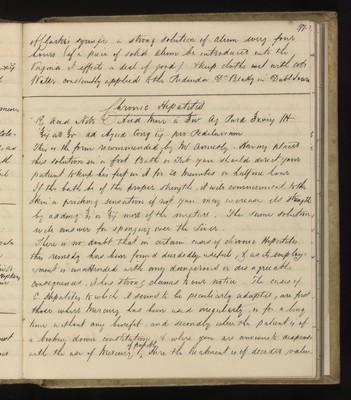 97
of Clarks syringe a strong solution of Alum every four
hours (if a piece of solid Alum be introduced into the
Vagina it effects a deal of good) & keep cloths wet with cold
Water constantly applied to the Pudenda Dr Beaty in Dubl Journ
Chronic Hepatitis
℞ Acid Nitric Acid Mur
ad Aqua Cong pro Pediluvium
This is the form recommended by Mr Annesly. Having placed
this solution in a foot Bath or Tub you should direct your
patient to keep his feet in it for 20 minutes or half an hour
If the bath be of the proper strength, it will communicate to the
skin a pricking sensation if not you may increase its strength
by adding or more of the mixture. The same solution
will answer for sponging over the Liver.
There is no doubt that in certain cases of chronic Hepatitis
this remedy has been found decidedly useful, & as its employ-
ment is unattended with any dangerous or disagreeable
consequences, it has strong claims to our notice. The cases of
C. Hepatitis to which it seems to be peculiarly adapted, are first
those where Mercury has been used irregularly, or for a long
time without any benefit and secondly when the patient is of
a broken down constitution, & where you are anxious to dispense
with the use of Mercury if possible, Here the treatment is of decided value